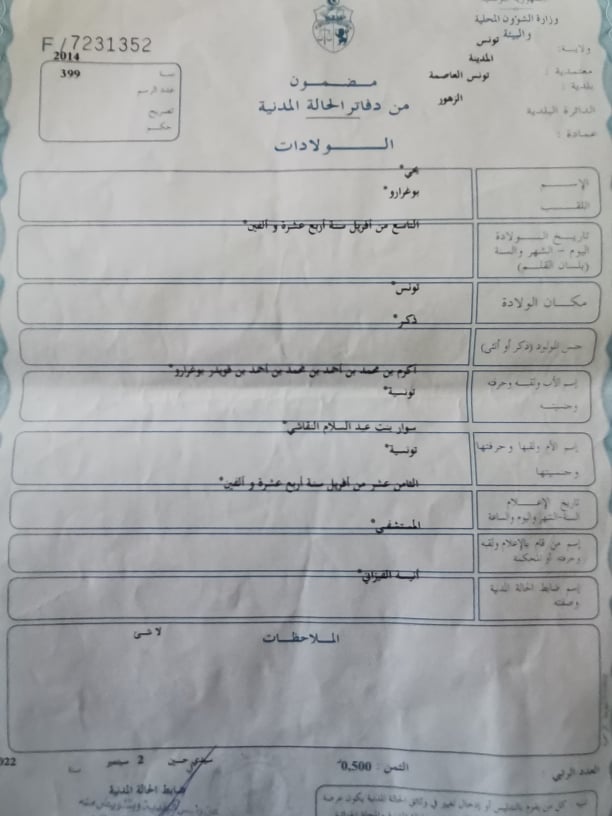 وزارة الشؤون المحلية
والبيئة
ولاية: تونس
معتمدية: المدينة
بلدية: تونس العاصمة
الدائرة البلدية الزهور
عمادة:
F/7231352
2014
سنة 399
عدد الرسم
التصريح
حكم
مضمون
من دفاتر الحالة المدنية
الولادات
الإسم يحي*
اللقب بوغرارو*
تاريخ الولادة التاسع من أفريل سنة أربع عشرة و ألفين*
اليوم - الشهر والسنة
(بلسان القلم)
مكان الولادة تونس*
جنس المولود (ذكر أو أنثى) ذكر*
إسم الأب ولقبه وحرفته أكرم بن محمد بن أحمد بن محمد بن أحمد بن قويدر بوغرارو*
وجنسيته تونسية*
إسم الأم ولقبها وحرفتها سوار بنت عبد السلام النقاشي*
وجنسيتها تونسية*
تاريخ الإعلام الثامن عشر من أفريل سنة أربع عشرة و ألفين*
السنة-الشهر واليوم والساعة
إسم من قام بالإعلام ولقبه المستشفى*
وحرفته أو المحكمة
إسم ضابط الحالة المدنية أنيسة الفيزاني*
وصفته
الملاحظات
لا شئ
العدد الرتبي: الثمن: 0,500 سيدي حسين 2 سبتمبر سنة
ضابط الحالة المدنية